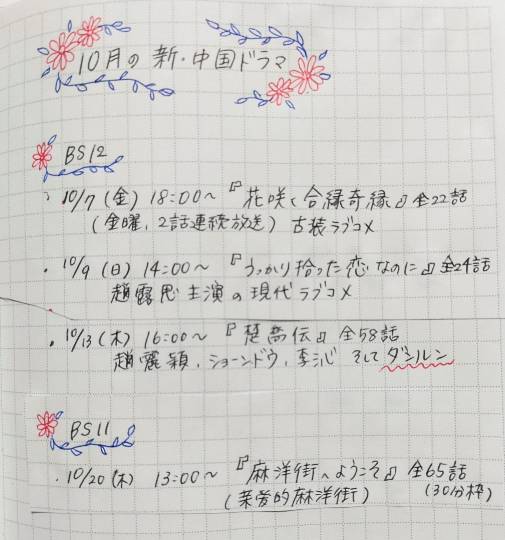 10月の新・中国ドラマ
BS12
・10/7(金) 18:00〜『花咲く合縁奇縁』全22話
(金曜、2話連続放送) 古装ラブコメ
・10/9(日) 14:00〜『うっかり拾った恋なのに』全24話
趙露思主演の現代ラブコメ
・10/13(木) 16:00〜『楚喬伝』全58話
趙麗穎、ショーンドウ、李沁 そしてダンルン
BS11
・10/20(木) 13:00〜『麻洋街へようこそ』全65話
(亲爱的麻洋街) (30分枠)